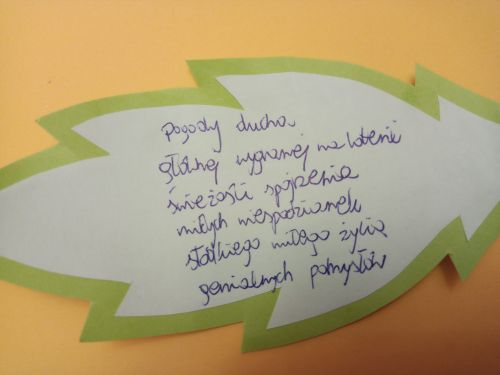 Pogody ducha
głównej wygranej na loterii
świeżości spojrzenia
miłych niespodzianek
słodkiego miłego życia
genialnych pomysłów